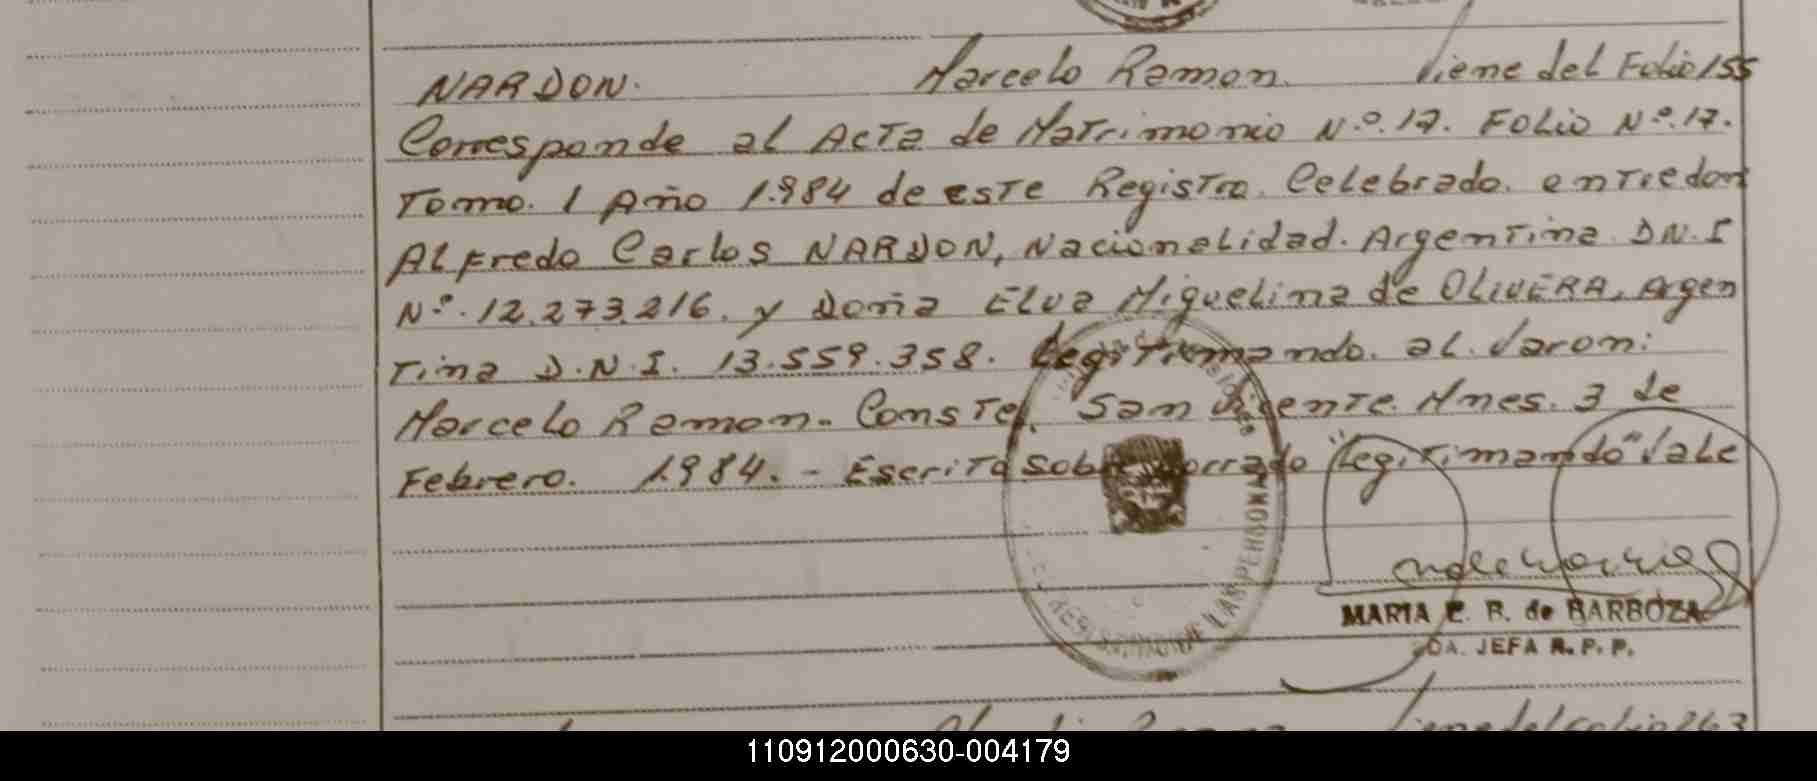 NARDON. Marcelo Ramon. Viene del Folio 155
Corresponde al Acta de Matrimonio N.º.17. FOLIO N.º.17.
Tomo. 1 Año 1.984 de este Registro. Celebrado. entre don
Alfredo Carlos NARDON, Nacionalidad. Argentina D.N.I
Nº.12.273.216. y Doña Elva Miguelina de OLIVERA, Argen
Tina D.N.I. 13.559.358. Legitimando. al. Varon:
Marcelo Ramon. Conste. San Vicente. Mnes. 3 de
Febrero. 1.984. - Escrito sobre borrado "Legitimando" Vale
MARIA E. R. de BARBOZA
JEFA R. P. P.
DE LAS PERSONAS
Viene del Folio 263
110912000630-004179